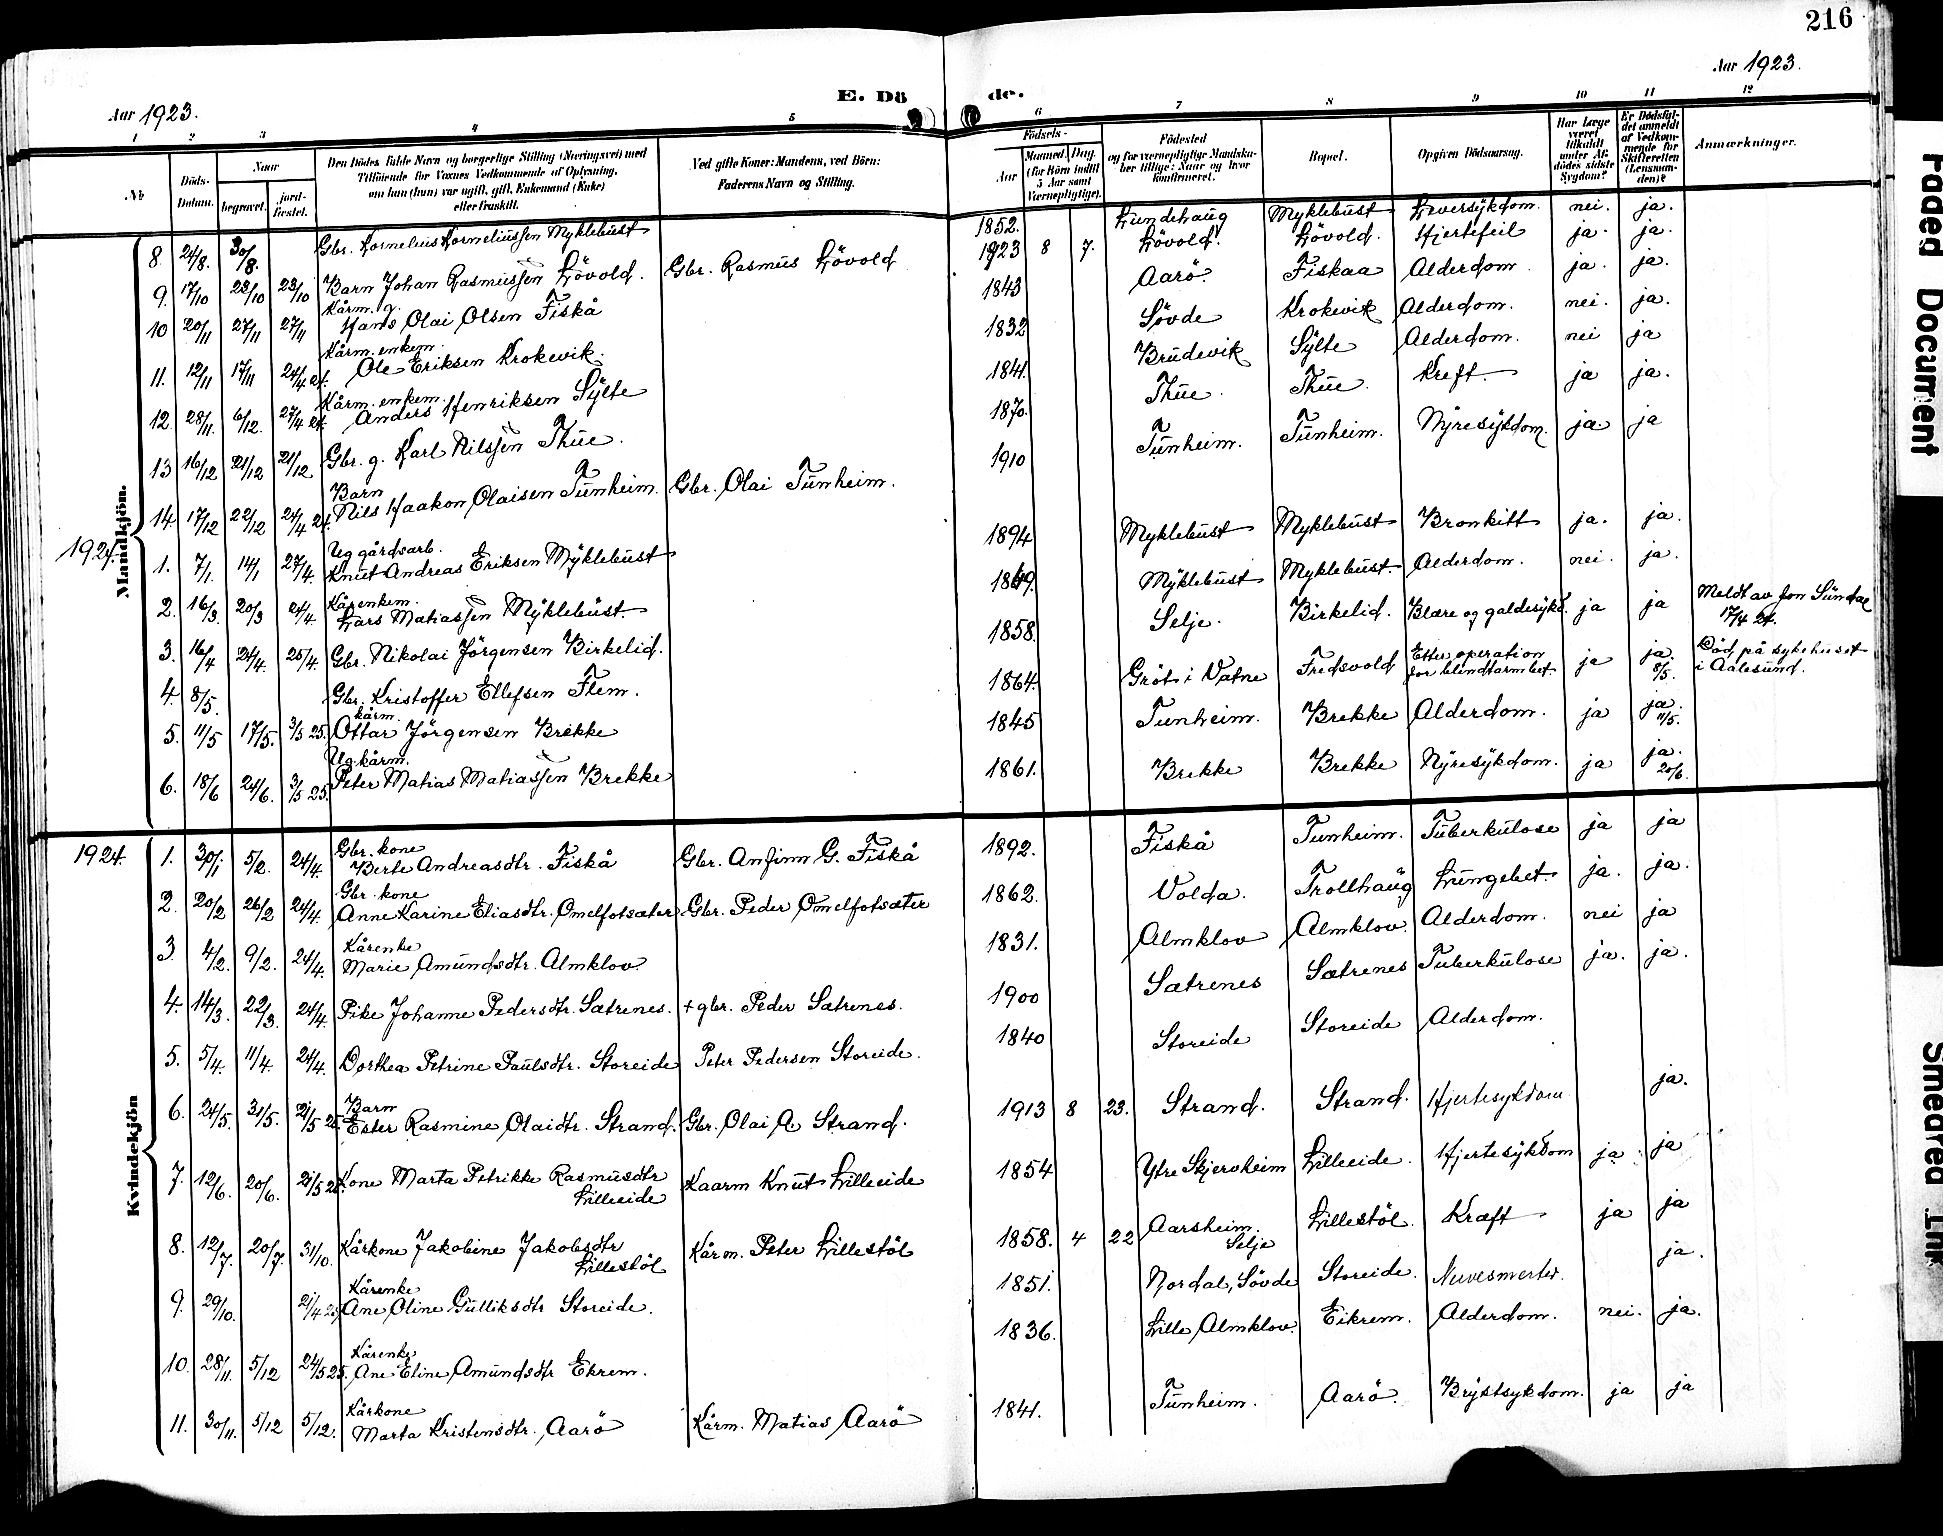 216
Aar 1923.
Aar 1923.
E. Dö
de.
1 2 3 4 5 6 7 8 9 10 11 12
No
Döds-Datum.
Naar
begravet.
jord-fæstet.
Den Dödes fulde Navn og borgerlige Stilling (Næringsvei) med
Tilföiende for Voxnes Vedkommende af Oplysning,
om han (hun) var ugift, gift, Enkemand (Enke)
eller fraskilt.
Ved gifte Koner: Mandens, ved Börn:
Faderens Navn og Stilling.
Födsels-
Aar
Maaned. Dag.
(for Börn indtil
5 Aar samt
Værnepligtige).
Födested
og for værnepligtige Mandska-
ber tillige: Naar og hvor
konfirmeret.
Bopæl.
Opgiven Dödsaarsag.
Har Læge
været
tilkaldt
under Af-
dödes sidste
Sygdom?
Er Dödsfal-
det anmeldt
af Vedkom-
mende for
Skifteretten
(Lensman-
den)?
Anmærkninger.
Mandkjön.
8. 24/8. 30/8. Gbr. Kornelius Korneliussen Myklebust 1852. Lundehaug Myklebust Leversykdom. nei. ja.
9. 17/10 23/10 23/10 Barn Johan Rasmussen Lövold. Gbr. Rasmus Lövold 1923 8 7. Lövold. Lövold. Hjertefeil ja. ja.
Kårm. g.
10 20/11 27/11 27/11 Hans Olai Olsen Fiskå 1843 Aarö. Fiskaa Alderdom. ja. ja.
Kårm. enkem.
11. 12/11 17/11 24/4 24. Ole Eriksen Krokevik. 1832 Sövde Krokevik Alderdom. nei. ja.
Kårm. enkem.
12. 28/11. 6/12. 27/4 24. Anders Henriksen Sylte 1841. Brudevik Sylte Alderdom. nei ja
13 16/12 21/12 21/12 Gbr. g. Karl Nilssen Thue. 1870. Thue. Thue. Kreft. ja ja.
Barn
14. 17/12 22/12 24/4 24. Nils Haakon Olaisen Tunheim. Gbr. Olai Tunheim. 1910 Tunheim. Tunheim. Nyresykdom. ja ja
1924.
Ug gårdsarb.
1. 7/1. 14/1 27/4. Knut Andreas Eriksen Myklebust 1894 Myklebust Myklebust Bronkitt ja. ja.
Kårenkem.
2. 16/3. 20/3 24/4. Lars Matiassen Myklebust. 1849. Myklebust Myklebust. Alderdom. nei. ja.
3. 16/4 24/4. 25/4. Gbr. Nikolai Jörgensen Birkelid. 1858. Selje. Birkelid. Blære og galdesykd. ja ja Meldt av Jon Sundal
17/4 24.
4. 8/5. Gbr. Kristoffer Ellefsen Flem. 1864. Gröt i Vatne Fredsvold Etter operation
for blindtarmbet. ja ja. 8/5. Död på sykehuset
i Aalesund.
kårm.
5. 11/5 17/5. 3/5 25. Ottar Jörgensen Brekke 1845 Tunheim. Brekke Alderdom. ja ja. 11/5.
Ug. kårm.
6. 18/6 24/6. 3/5 25. Peter Matias Matiassen Brekke 1861. Brekke Brekke Nyresykdom. ja ja. 20/6.
Kvindekjön
1924.
Gbr. kone
1. 30/1 5/2. 24/4. Berte Andreasdtr. Fiskå Gbr. Anfinn G. Fiskå 1892. Fiskå Tunheim. Tuberkulose ja ja
Gbr. kone
2. 20/2 26/2 24/4. Anne Karine Eliasdtr. Omelfotsæter Gbr. Peder Omelfotsæter 1862. Volda. Trollhaug Lungebet. ja. ja.
Kårenke
3. 4/2. 9/2. 24/4. Marie Amundsdtr. Almklov. 1831. Almklov Almklov. Alderdom. nei ja
4. 14/3. 22/3. 24/4. Pike Johanne Pedersdtr. Sætrenes. + gbr. Peder Sætrenes. 1900 Sætrenes Sætrenes Tuberkulose ja. ja.
5. 5/4. 11/4. 24/4. Dorthea Petrine Paulsdtr. Storeide Peter Pedersen Storeide. 1840 Storeide Storeide Alderdom.
Barn
6. 24/5. 31/5. 21/5 25. Ester Rasmine Olaidtr. Strand. Gbr. Olai A Strand. 1913 8 23. Strand. Strand. Hjertesykdom ja.
7. 12/6. 20/6. 21/5 25. Kone Marta Petrikke Rasmusdtr
Lilleeide Kaarm Knut Lilleeide 1854 Ytre Skjervheim Lilleeide. Hjertesykdom ja. ja
8. 12/7. 20/7. 31/10. Kårkone Jakobine Jakobsdtr
Lillestöl Kårm. Peter Lillestöl 1858. 4 22 Aarsheim.
Selje Lillestöl. Kræft ja ja
Kårenke
9. 29/10. 21/4 25. Ane Oline Gulliksdtr Storeide. 1851. Nordal, Sövde Storeide. ja.
Kårenke
10. 28/11. 5/12 24/5 25. Ane Eline Amundsdtr Ekrem. 1836. Lille Almklov. Eikrem. Alderdom. nei. ja.
Kårkone
11. 30/11. 5/12 5/12. Marta Kristensdtr. Aarö Kårm. Matias Aarö 1841. Tunheim. Aarö. Brystsykdom. ja ja
Faded Document
Smeared Ink